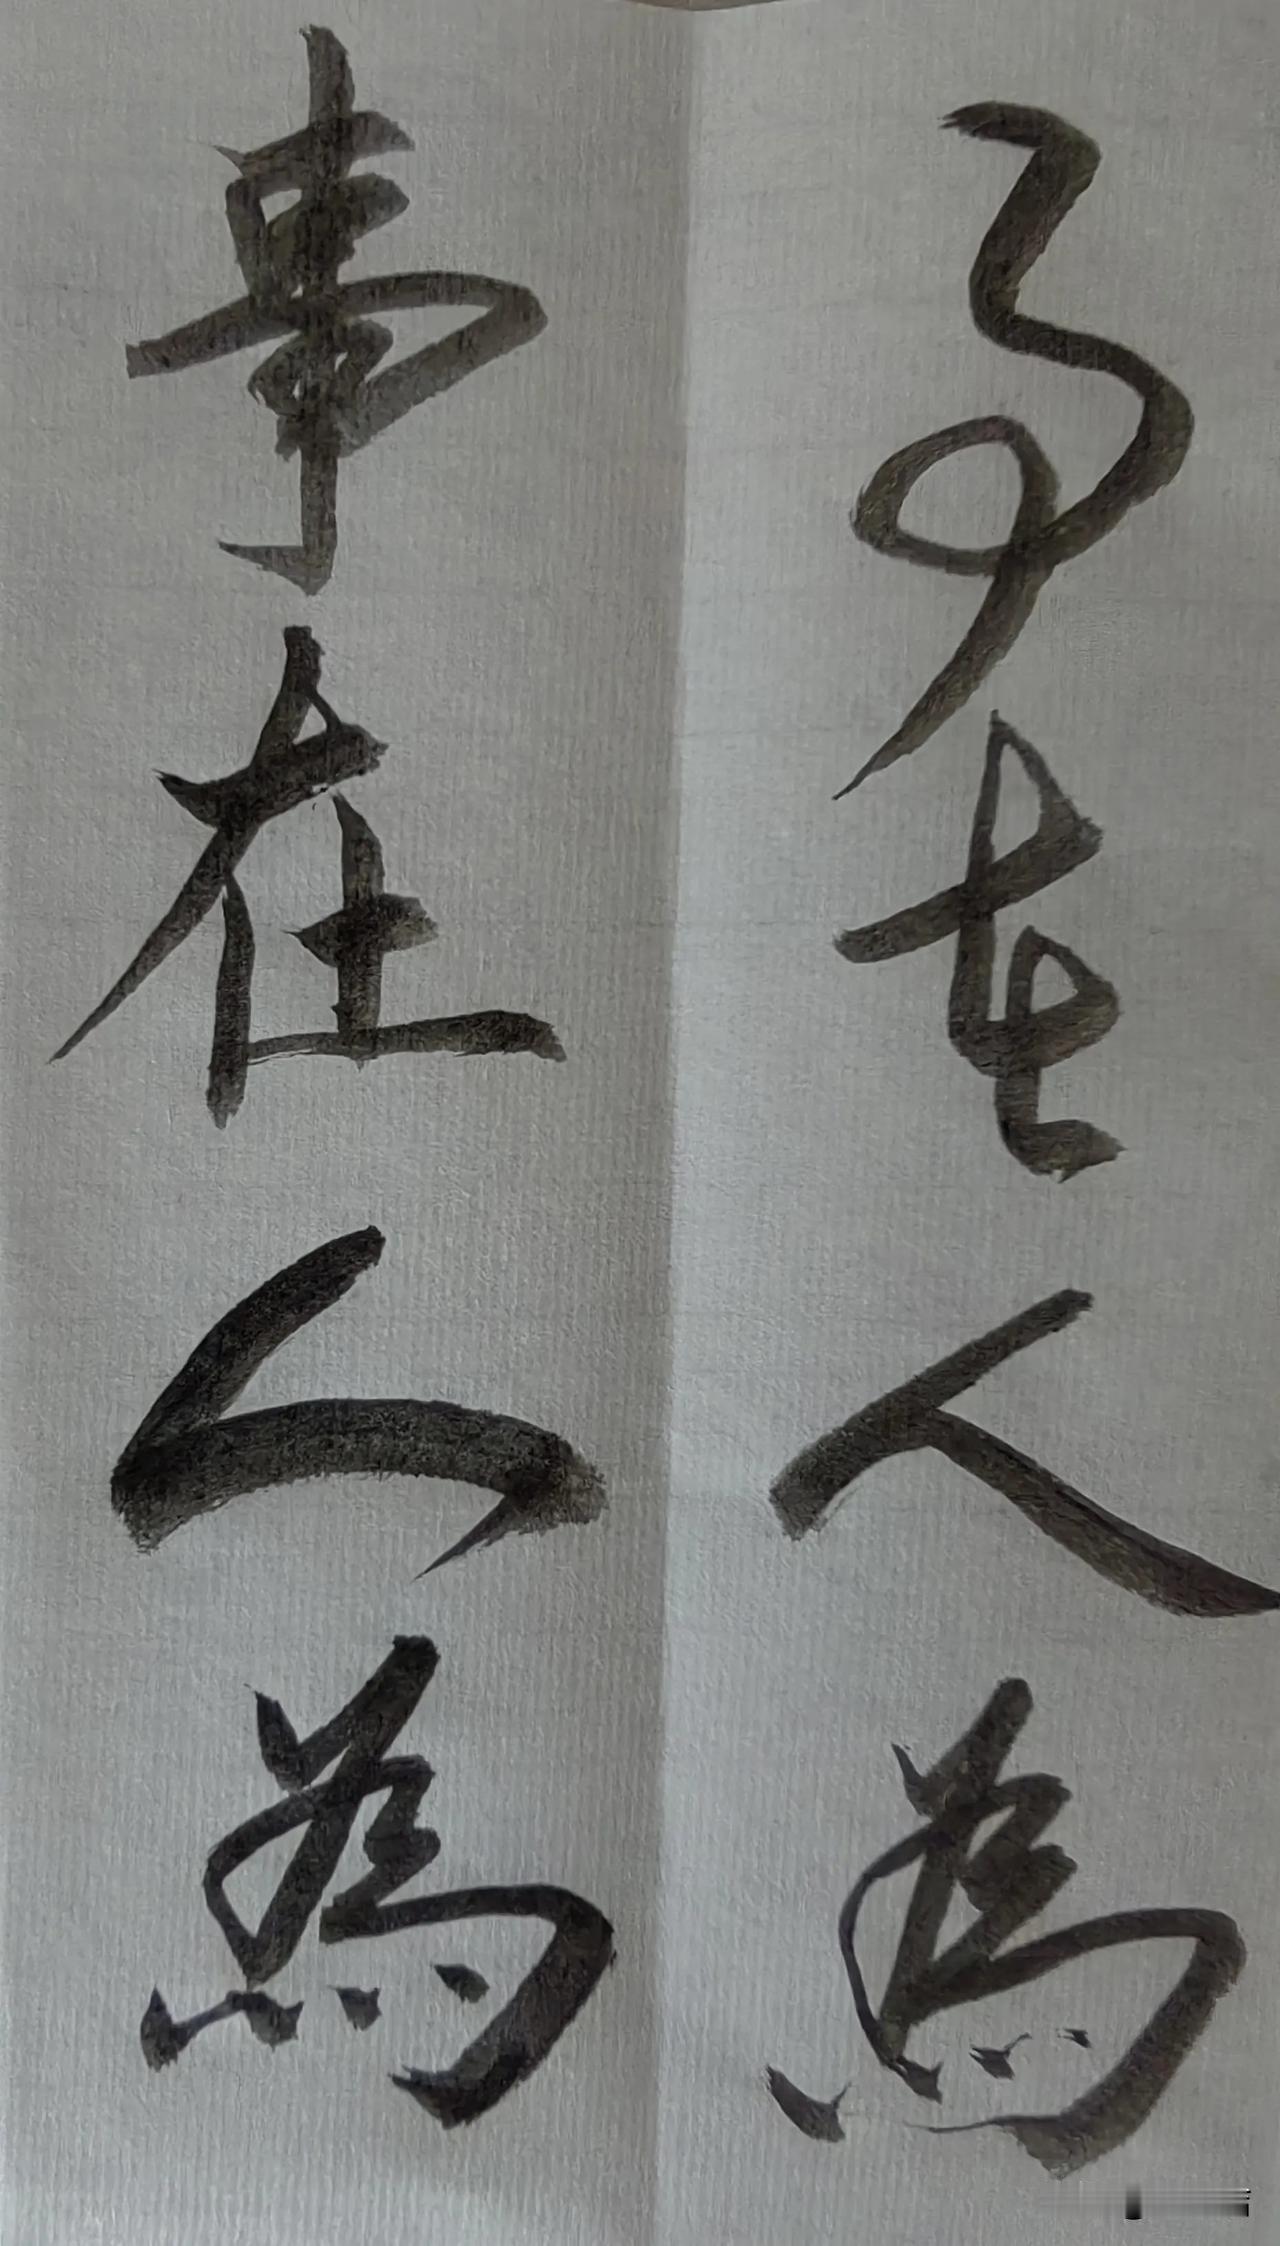 事在人為
事在人為